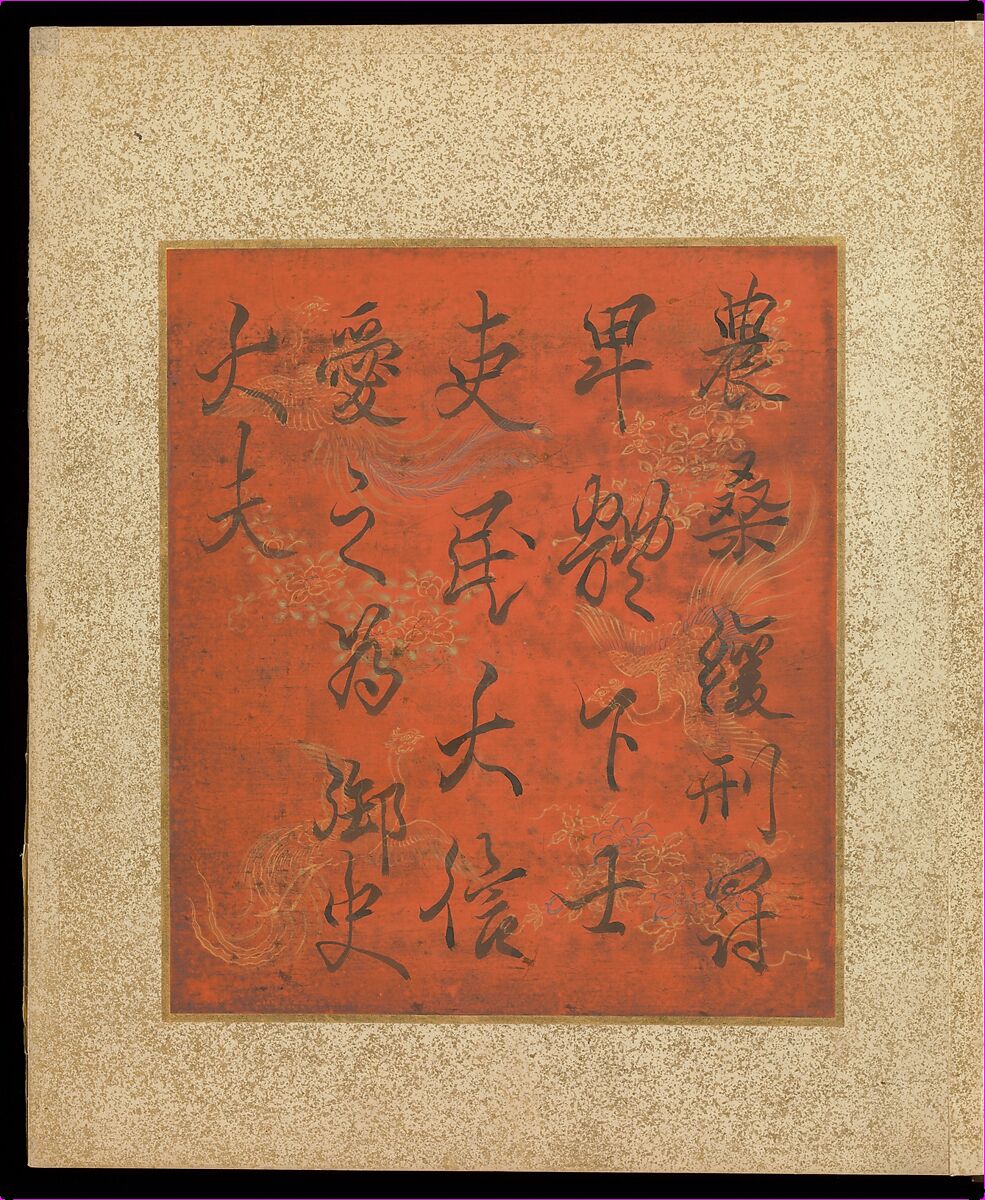 農桑緩刑罸
卑體下士
吏民大信
愛之為御史
大夫